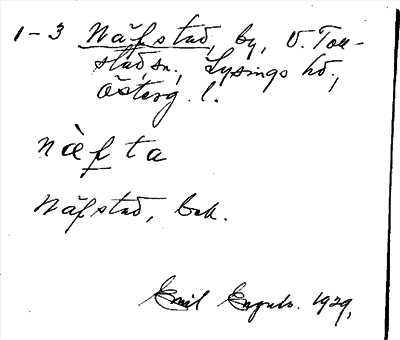 1-3 Näfstad, by, V. Tol-
stad sn., Lysings hd.,
Österg. l.
nàfta
Näfstad, bok.
Emil 1929.